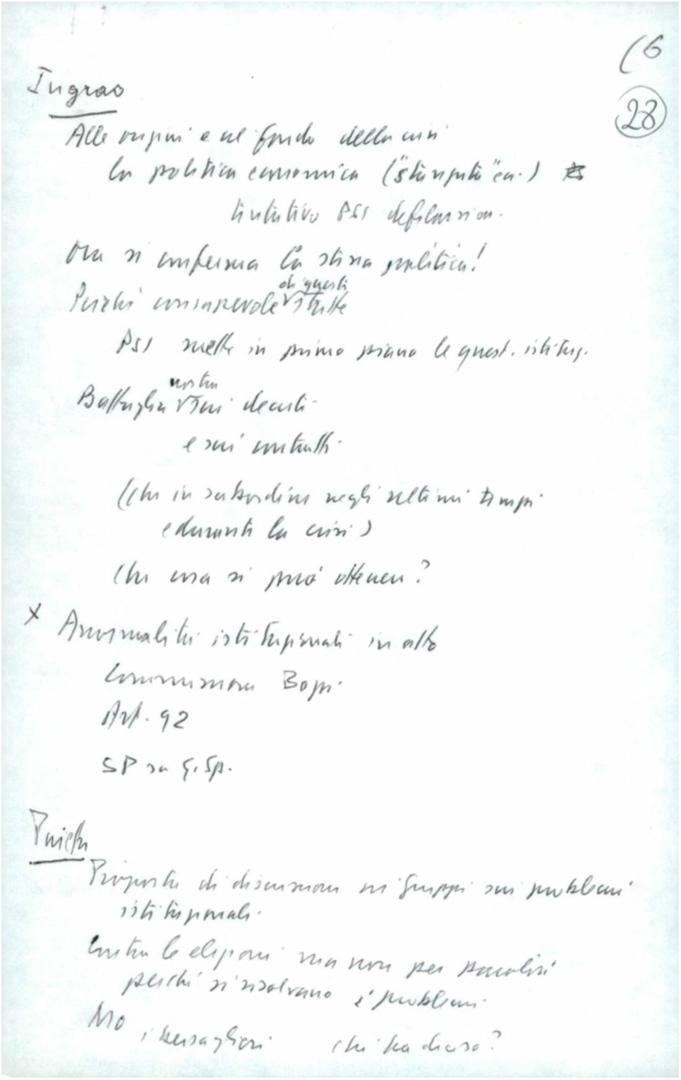 (6
28
Ingrao
Alle origini e al fondo della crisi
la politica economica (
tentativo PSI deflazion.
Ora si conferma la stessa politica!
di questi
Perché consapevole
PSI mette in primo piano le quest. istituz.
nostra
Battaglia sui decreti
e sui contratti
(che in subordine negli ultimi tempi
e durante la crisi)
Che cosa si può ottenere?
x Anormalità istituzionali in atto
Commissione Bozzi
Art. 92
SP su
Pajetta
Proposta di discussione nei Gruppi sui problemi
istituzionali.
Contro le elezioni ma non per paralisi
perché si risolvano i problemi
No i bersaglieri che ha deciso?